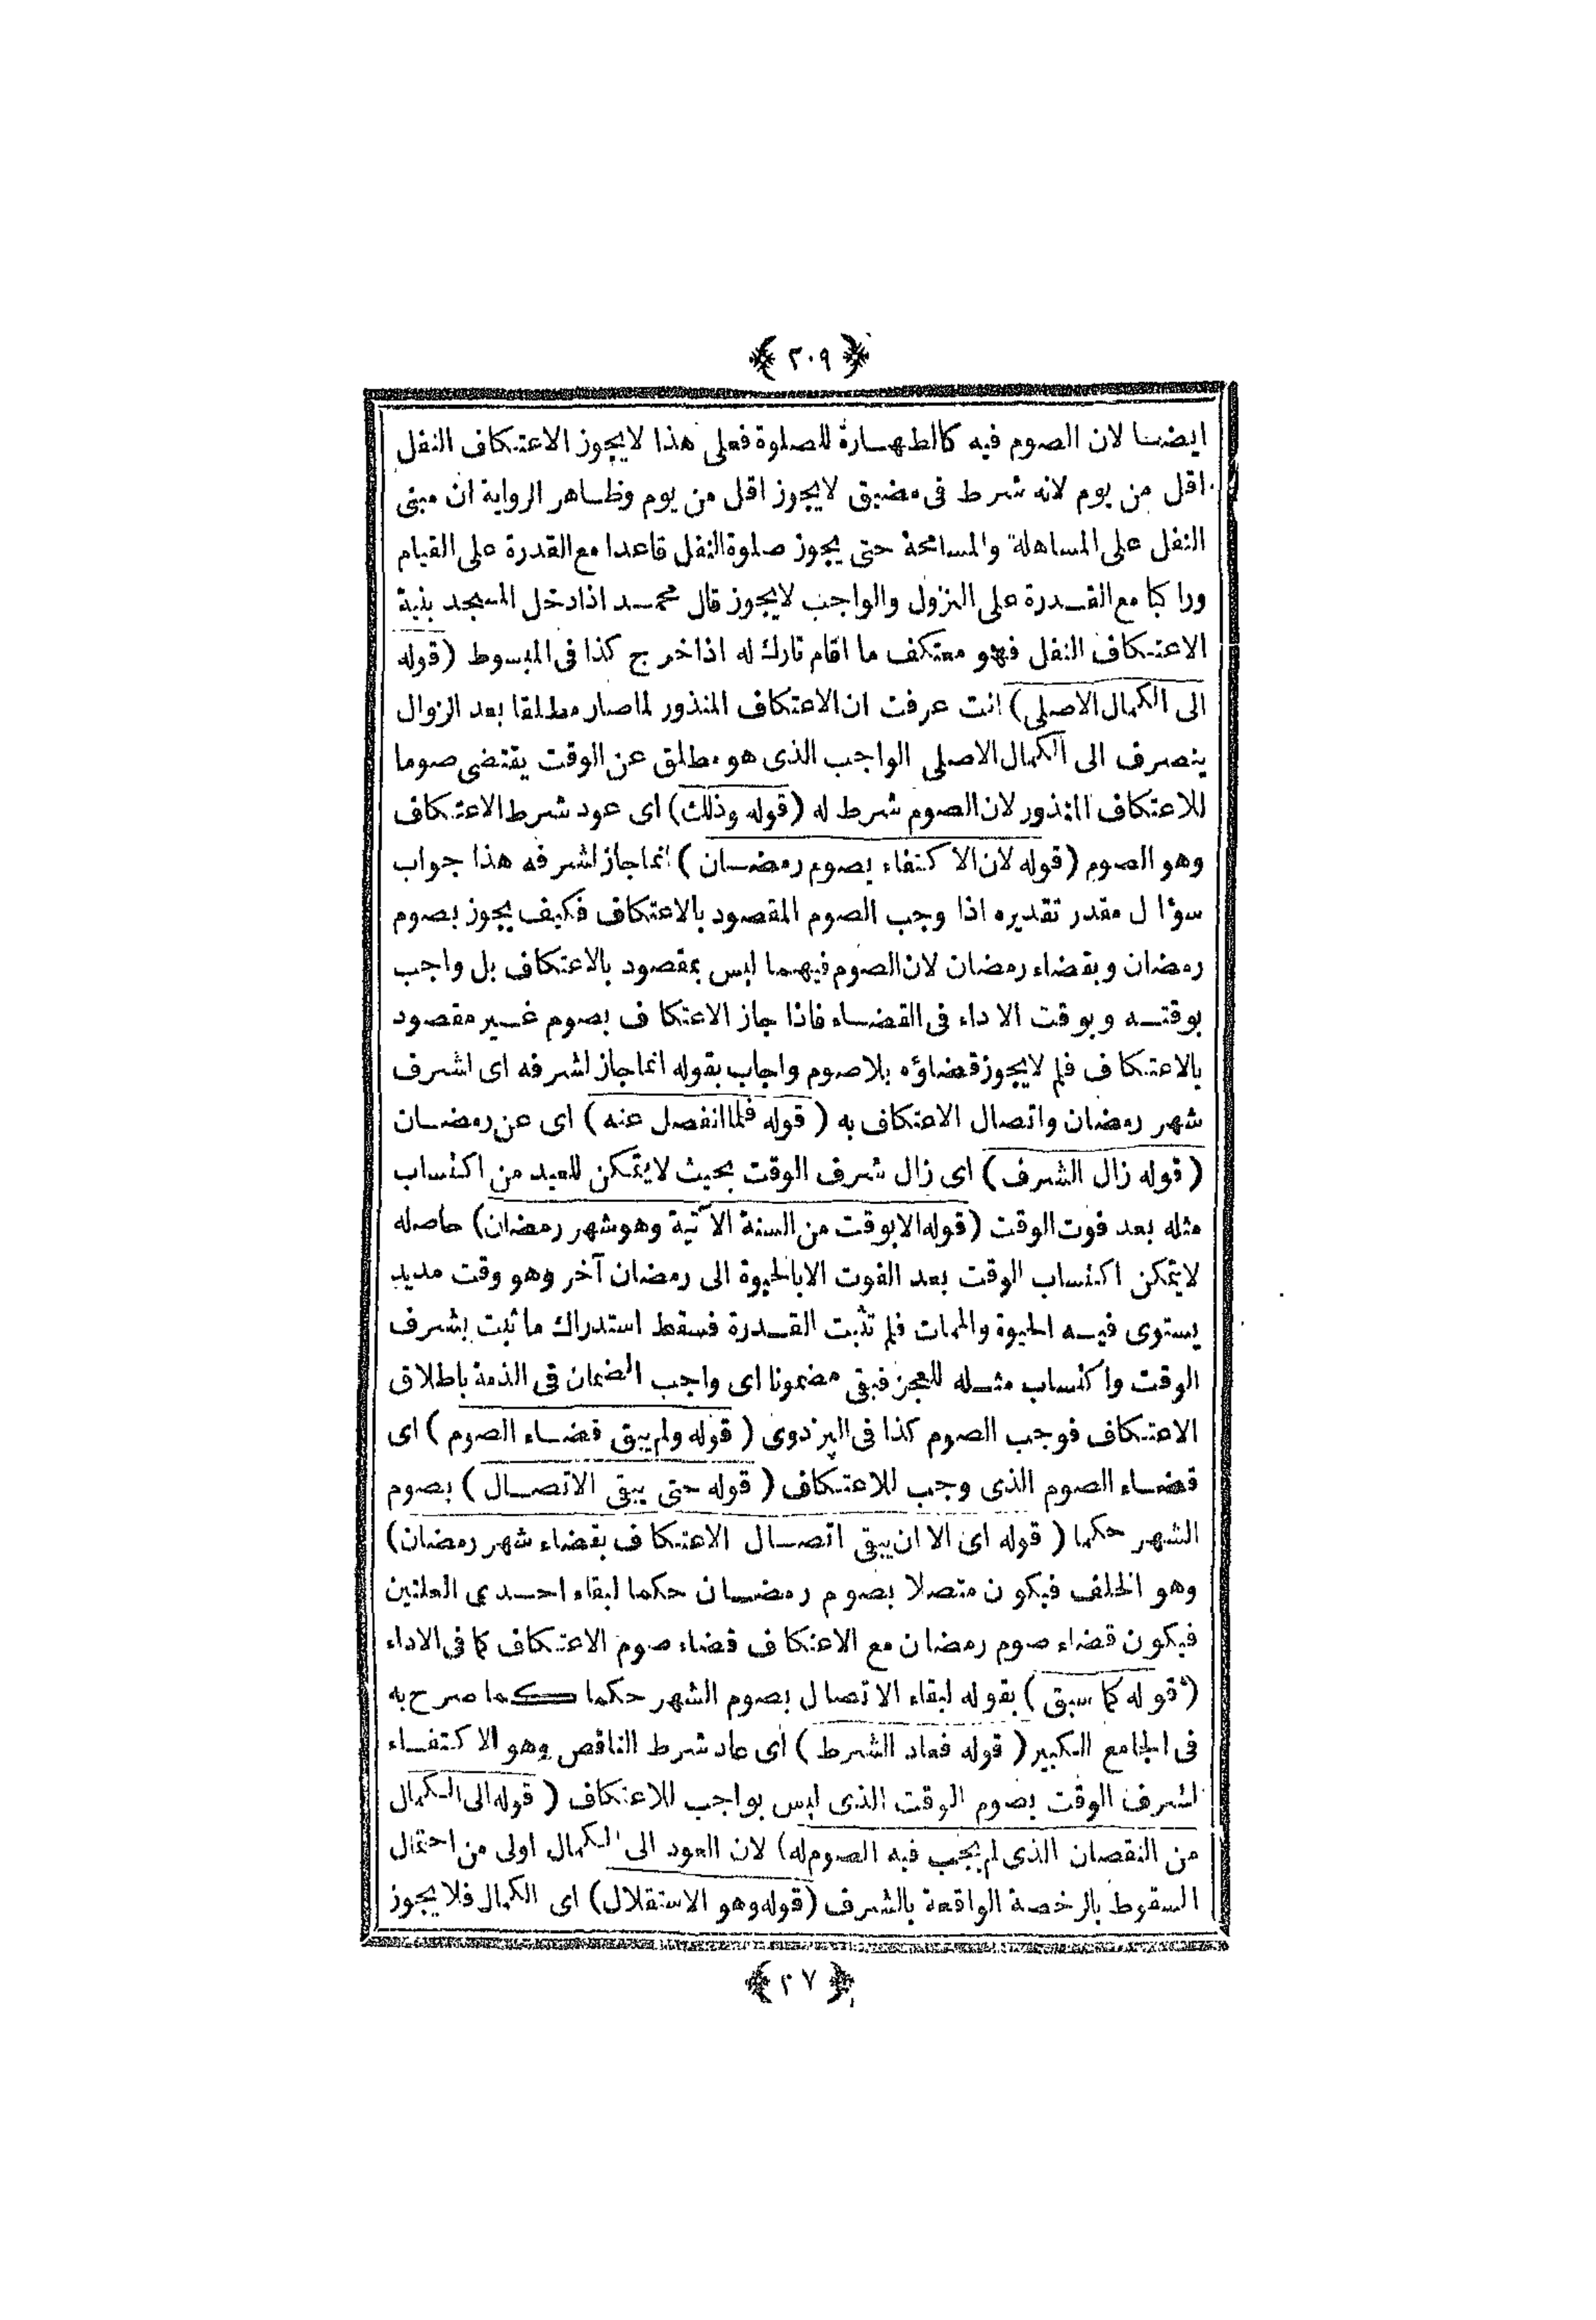 ﴿ ٢٠٩ ﴾
ايضا لان الصوم فيه كالطهارة للصلوة فعلى هذا لايجوز الاعتكاف النفل
اقل من يوم لانه شرط فى مضيق لايجوز اقل من يوم وظاهر الرواية ان مبنى
النفل على المساهلة والمسامحة حتى يجوز صلوة النفل قاعدا مع القدرة على القيام
وراكبا مع القدرة على النزول والواجب لايجوز قال محمد اذا دخل المسجد بنية
الاعتكاف النفل فهو معتكف ما اقام تارك له اذا خرج كذا فى المبسوط (قوله
الى الكمال الاصلى) انت عرفت ان الاعتكاف المنذور لما صار مطلقا بعد الزوال
ينصرف الى الكمال الاصلى الواجب الذى هو مطلق عن الوقت يقتضى صوما
للاعتكاف المنذور لان الصوم شرط له (قوله وذلك) اى عود شرط الاعتكاف
وهو الصوم (قوله لان الاكتفاء بصوم رمضان) انما جاز لشرفه هذا جواب
سؤال مقدر تقديره اذا وجب الصوم المقصود بالاعتكاف فكيف يجوز بصوم
رمضان وبقضاء رمضان لان الصوم فيهما ليس بمقصود بالاعتكاف بل واجب
بوقته وبوقت الاداء فى القضاء فاذا جاز الاعتكاف بصوم غير مقصود
بالاعتكاف فلم لايجوز قضاؤه بلا صوم واجاب بقوله انما جاز لشرفه اى لشرف
شهر رمضان واتصال الاعتكاف به (قوله فلما انفصل عنه) اى عن رمضان
(قوله زال الشرف) اى زال شرف الوقت بحيث لايتمكن للعبد من اكتساب
مثله بعد فوت الوقت (قوله الا بوقت من السنة الآتية وهو شهر رمضان) حاصله
لايتمكن اكتساب الوقت بعد الفوت الا بالحيوة الى رمضان آخر وهو وقت مديد
يستوى فيه الحيوة والممات فلم تثبت القدرة فسقط استدراك ما ثبت بشرف
الوقت واكتساب مثله للعجز فبقى مضمونا اى واجب الضمان فى الذمة باطلاق
الاعتكاف فوجب الصوم كذا فى البزدوى (قوله ولم يبق قضاء الصوم) اى
قضاء الصوم الذى وجب للاعتكاف (قوله حتى يبقى الاتصال) بصوم
الشهر حكما (قوله اى الا ان يبقى اتصال الاعتكاف بقضاء شهر رمضان)
وهو الخلف فيكون متصلا بصوم رمضان حكما لبقاء احدى العلتين
فيكون قضاء صوم رمضان مع الاعتكاف قضاء صوم الاعتكاف كما فى الاداء
(قوله كما سبق) بقوله لبقاء الاتصال بصوم الشهر حكما كما صرح به
فى الجامع الكبير (قوله فعاد الشرط) اى عاد شرط الناقص وهو الاكتفاء
لشرف الوقت بصوم الوقت الذى ليس بواجب للاعتكاف (قوله الى الكمال
من النقصان الذى لم يجب فيه الصوم له) لان العود الى الكمال اولى من احتمال
السقوط بالرخصة الواقعة بالشرف (قوله وهو الاستقلال) اى الكمال فلا يجوز
﴿ ٢٧ ﴾